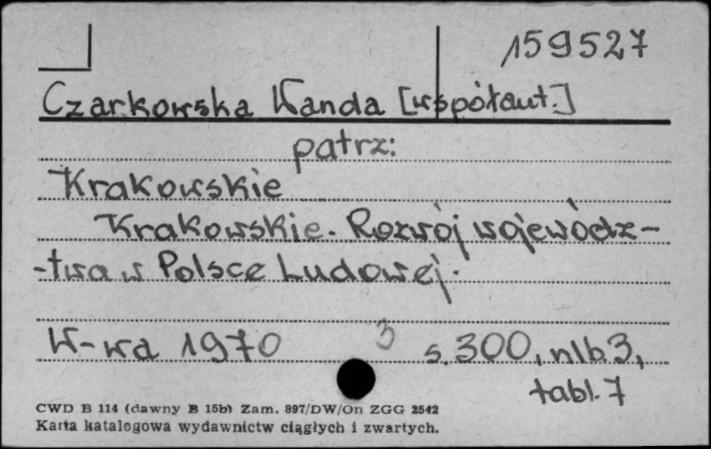 159527
Czarkowska Wanda [współaut.]
patrz:
Krakowskie
Krakowskie. Rozwój wojewódz-
-twa w Polsce Ludowej.
W-wa 1970 3 s. 300, nlb. 3,
tabl. 7
CWD B 114 (dawny B 15b) Zam. 897/DW/On ZGG 2542
Karta katalogowa wydawnictw ciągłych i zwartych.